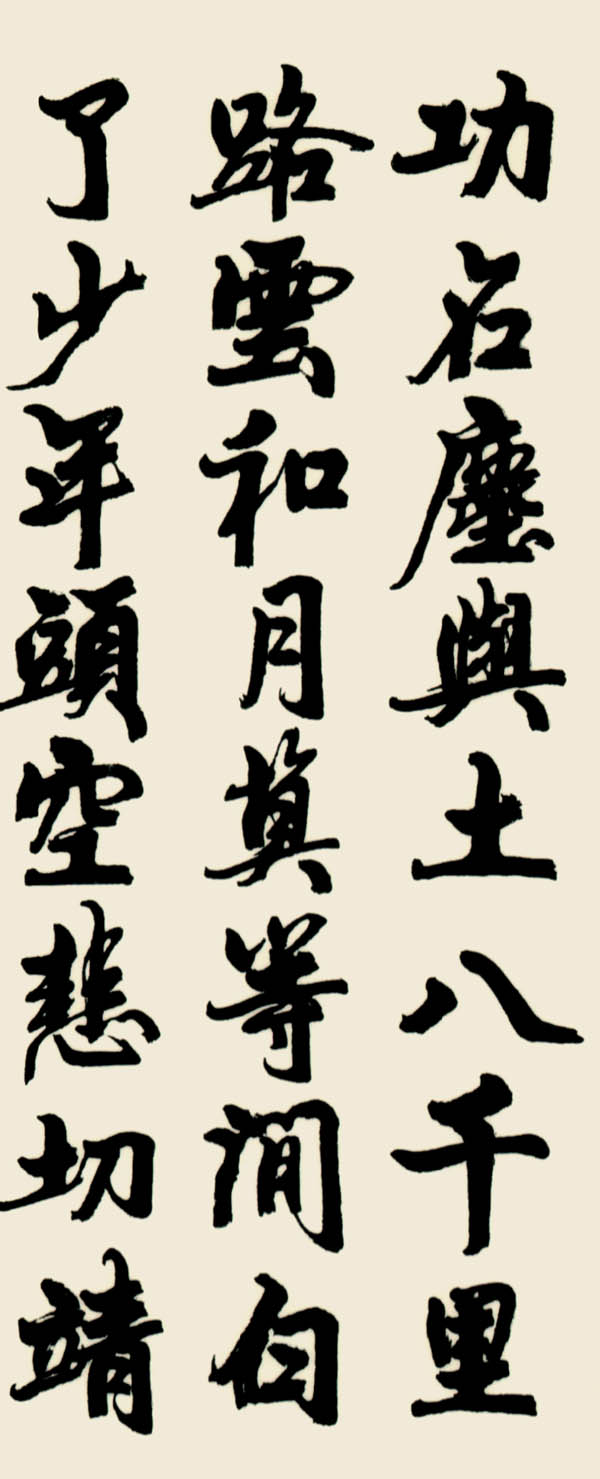 功名塵與土八千里
路雲和月莫等閒白
了少年頭空悲切靖